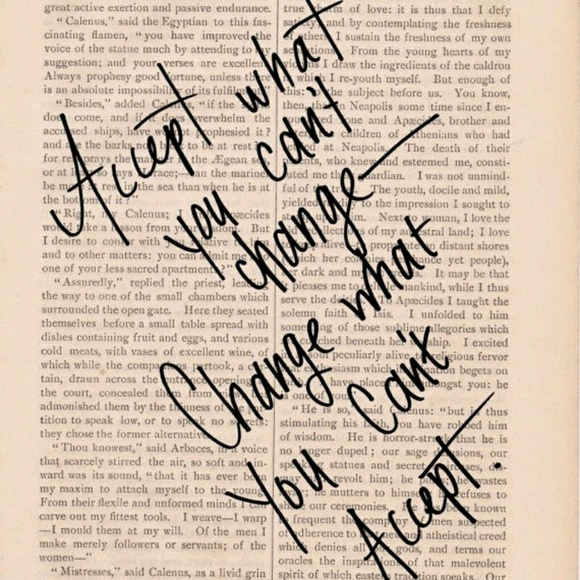 Accept what
you can't
change—
Change what
You Can't
Accept.
great active exertion and passive endurance.
"Calenus," said the Egyptian to this fas-
cinating flamen, "you have improved
voice of the statue much by attending to
suggestion; and your verses are excellen
Always prophesy good fortune, unless
an absolute impossibility of its fulfil
"Besides," added Calen "if the
does come, and it does overwhelm the
accused ships, have prophesied it?
and are the barks not to be at rest
for prays the mar the Ægean se
or at the marine
be m at rest the sea than when he is at
the bottom of it?"
"Right, Calenus; Apæcides
would take a lesson from your wisdom. But
I desire to confer with
and to other matters: you can admit me
one of your less sacred apartments."
"Assuredly," replied the priest, lea
the way to one of the small chambers which
surrounded the open gate. Here they seated
themselves before a small table spread with
dishes containing fruit and eggs, and various
cold meats, with vases of excellent wine, o
which while the companions partook, a c
tain, drawn across the entrance opening
the court, concealed them from
admonished them by the thinness of the
tition to speak low, or to speak no secrets:
they chose the former alternative.
"Thou knowest," said Arbaces, in a voice
that scarcely stirred the air, so soft and in-
ward was its sound, "that it has ever be
my maxim to attach myself to the young
From their flexile and unformed minds I can
carve out my fittest tools. I weave—I warp
—I mould them at my will. Of the men I
make merely followers or servants; of the
women—"
"Mistresses," said Calenus, as a livid grin
true of love: it is thus that I defy
and by contemplating the freshness
I sustain the freshness of my own
From the young hearts of my
I draw the ingredients of the caldron
which I re-youth myself. But enough of
his: the subject before us. You know,
then, Neapolis some time since I en-
one and Apæcides, brother and
children of Athenians who had
at Neapolis. The death of their
who knew and esteemed me, consti-
uted me their guardian. I was not unmind-
ful of the The youth, docile and mild,
yielded to the impression I sought to
him. Next woman, I love the
recollections of my ancestral land; I love
to propagate on distant shores
which her colonies yet people),
her dark and my It may be that
it pleases me to mankind, while I thus
serve the deities. To Apæcides I taught the
solemn faith of Isis. I unfolded to him
something of those sublime allegories which
beneath her worship. I excited
in soul peculiarly alive religious fervor
that enthusiasm which imagination begets on
have placed amongst you: he
one
"He is so," said Calenus: "but thus
stimulating his you have robbed him
of wisdom. He is horror-struck that he is
no longer duped; our sage delusions, our
speaking statues and secret
revolt him; he
he mutters to himself refuses to
share our ceremonies. known
to frequent the men suspected
adherence to atheistical creed
which denies all gods, and terms our
oracles the inspirations of that malevolent
spirit of which eastern tradition speaks. Our